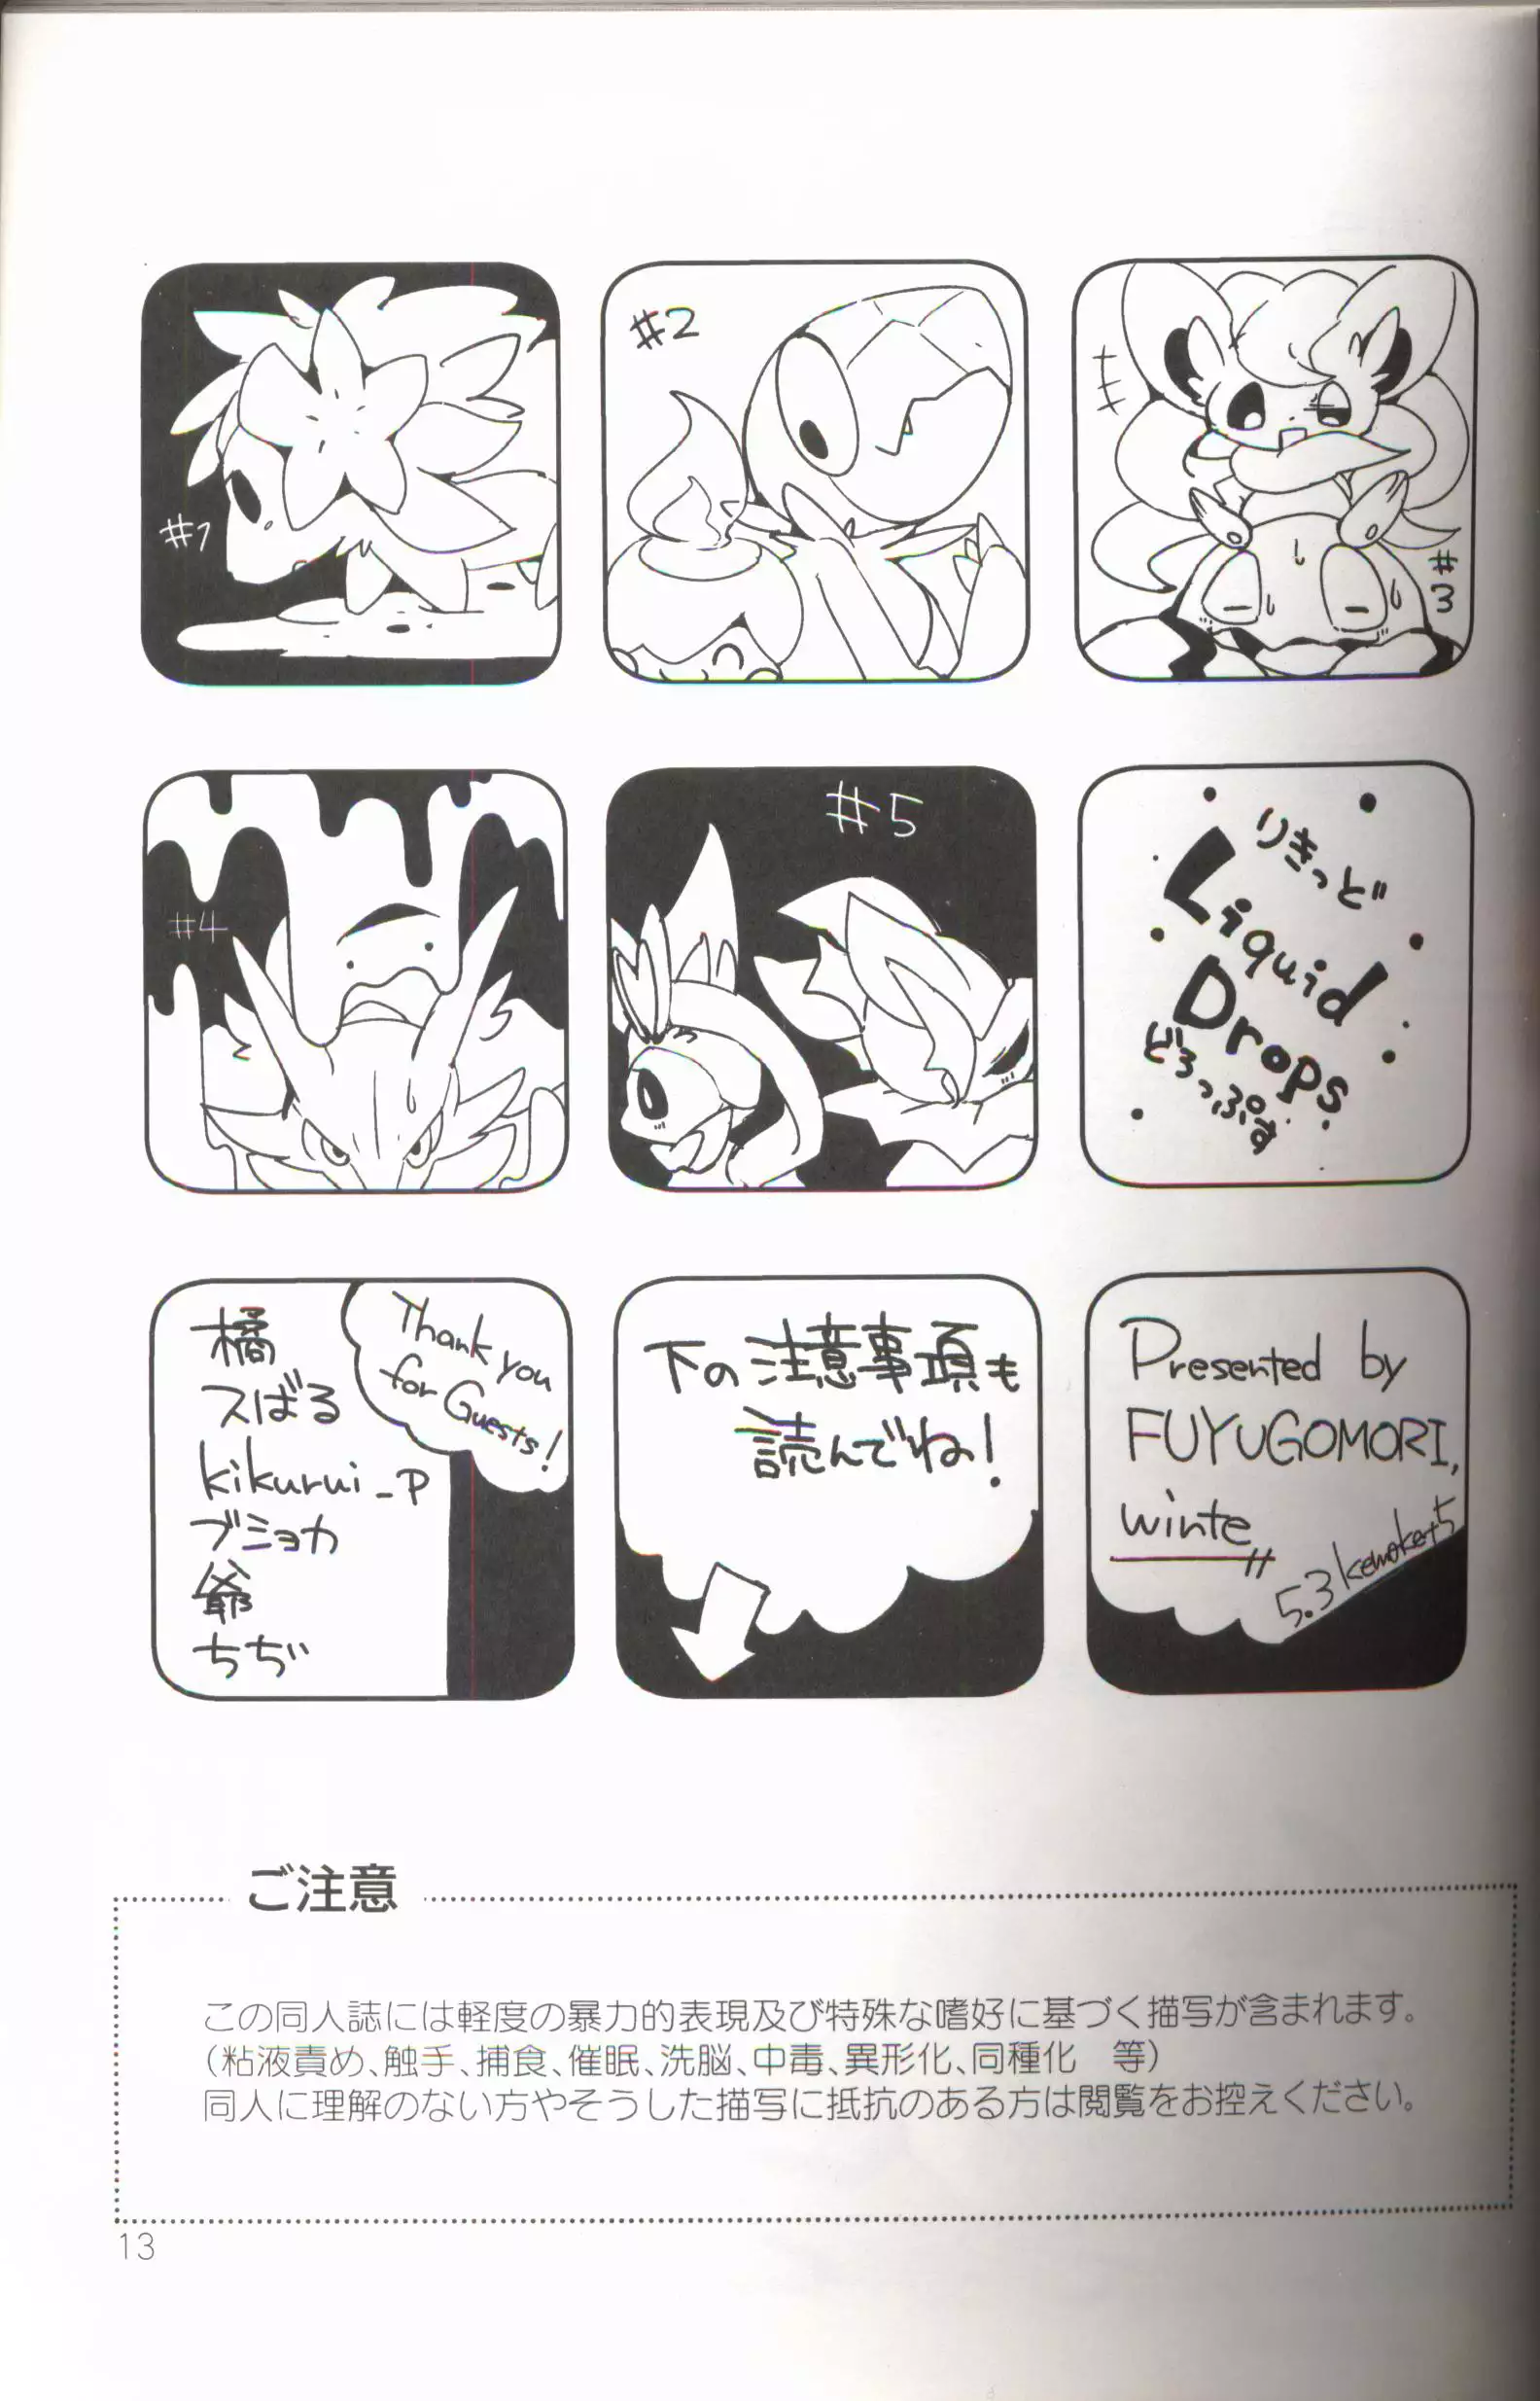 #1
#2
#3
#4
#5
りきっど
Liquid
Drops.
どろっぷす
橘
スばる
kikurui_p
ブミョカ
爺
ちぢ
Thank you
for Guests!
下の注意事項も
読んでね!
Presented by
FUYUGOMORI,
winte
5.3 kemoket5
ご注意
この同人誌には軽度の暴力的表現及び特殊な嗜好に基づく描写が含まれます。
(粘液責め、触手、捕食、催眠、洗脳、中毒、異形化、同種化 等)
同人に理解のない方やそうした描写に抵抗のある方は閲覧をお控えください。
13